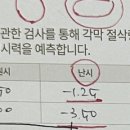 관한 검사를 통해 각막 절삭
시력을 예측합니다.
원시 난시
50 -1.25
00 -3.50